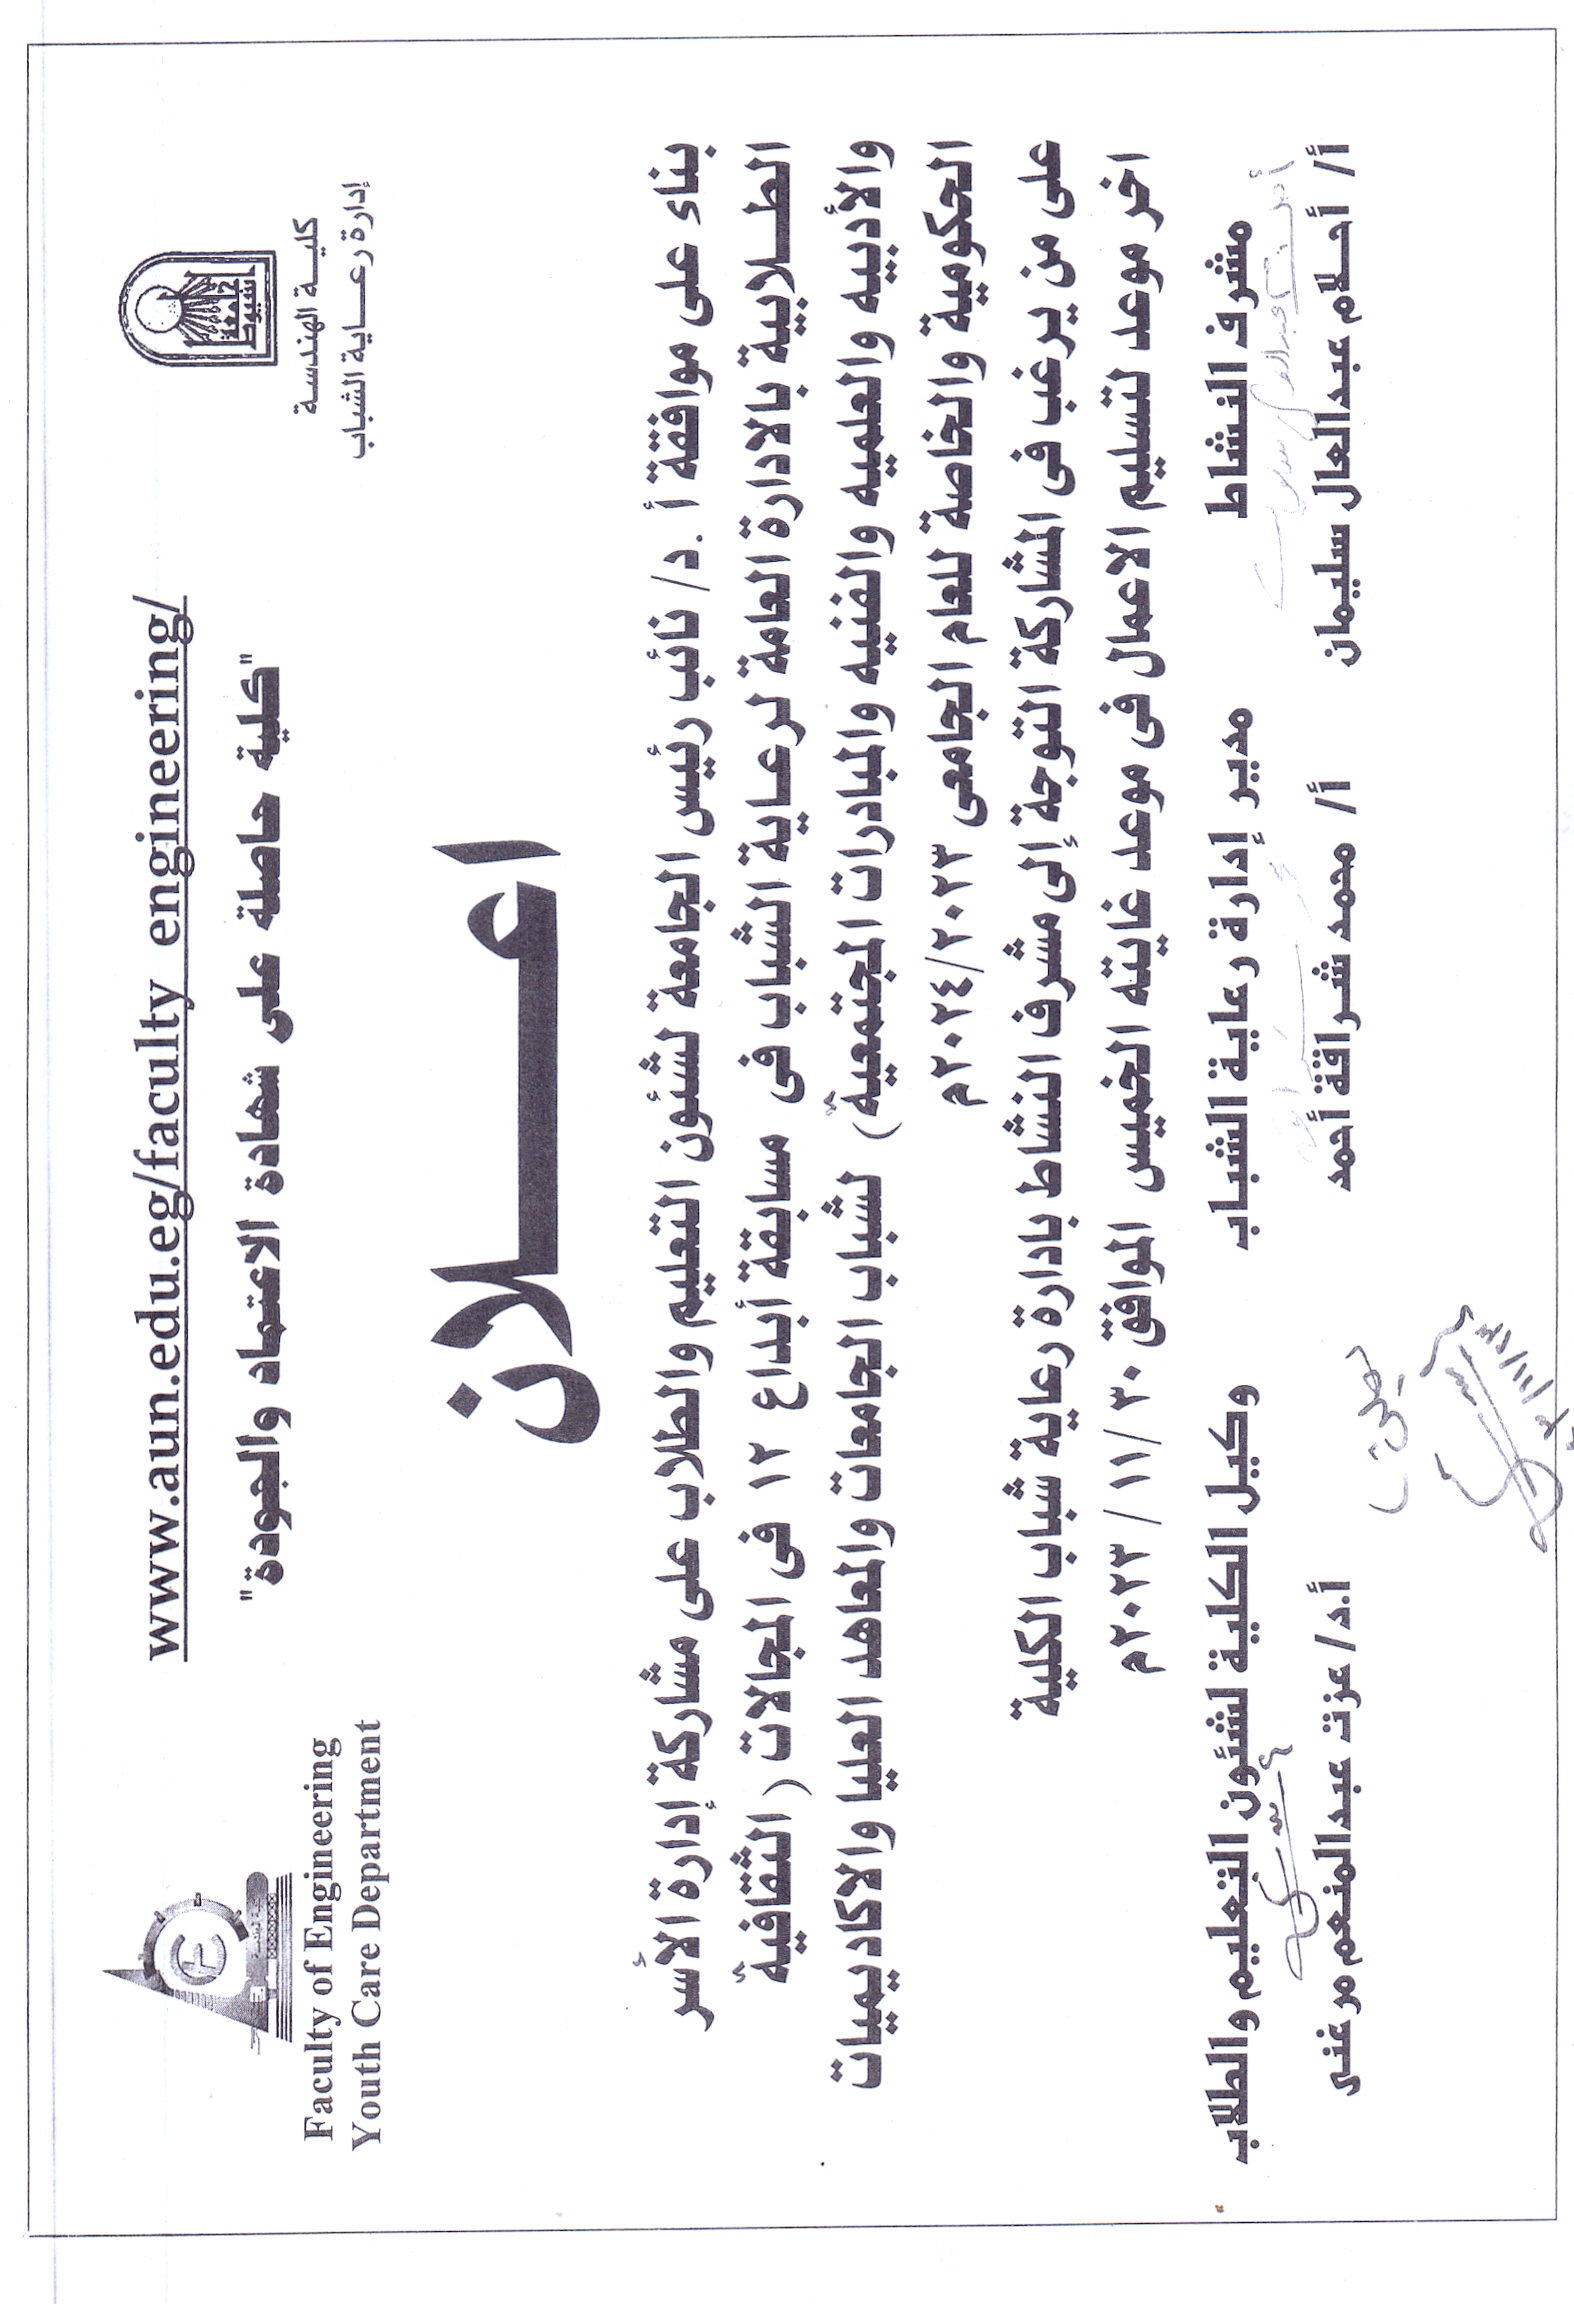 www.aun.edu.eg/faculty engineering/
"كلية حاصلة على شهادة الاعتماد والجودة"
جامعة أسيوط
كليـة الهندسـة
إدارة رعـــاية الشباب
Faculty of Engineering
Youth Care Department
اعـــلان
بناء على موافقة أ .د/ نائب رئيس الجامعة لشئون التعليم والطلاب على مشاركة إدارة الأسر
الطلابية بالادارة العامة لرعاية الشباب فى مسابقة أبداع ١٢ فى المجالات ( الثقافيه
والأدبيه والعلميه والفنيه والمبادرات المجتمعيه) لشباب الجامعات والمعاهد العليا والاكاديميات
الحكومية والخاصة للعام الجامعى ٢٠٢٤/٢٠٢٣م
على من يرغب فى المشاركة التوجة إلى مشرف النشاط بادارة رعاية شباب الكلية
اخر موعد لتسليم الاعمال فى موعد غايته الخميس الموافق ٣٠ /١١/ ٢٠٢٣م
مشرف النشاط مدير إدارة رعاية الشباب وكيل الكلية لشئون التعليم والطلاب
أ/ أحـلام عبدالعال سليمان أ/ محمد شـراقة أحمد أ.د/ عزت عبدالمنعم مرغنى